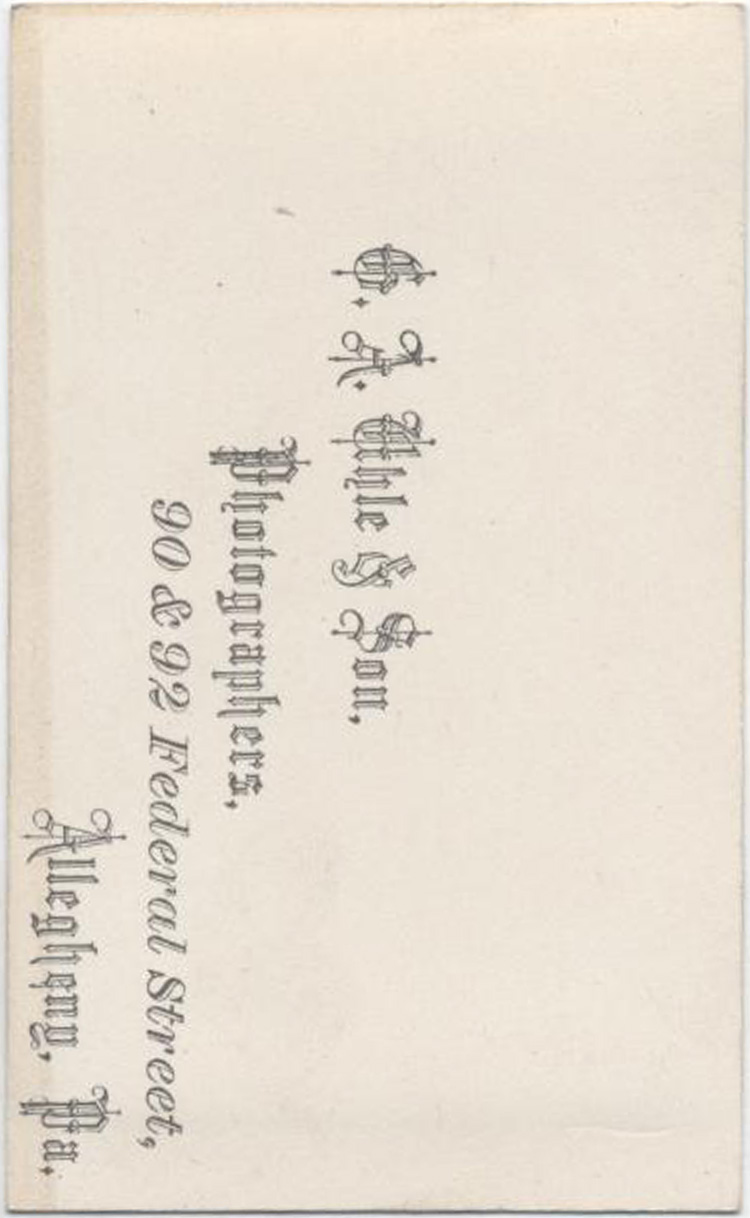 C. A. Uhle & Son,
Photographers,
90 & 92 Federal Street,
Allegheny, Pa.